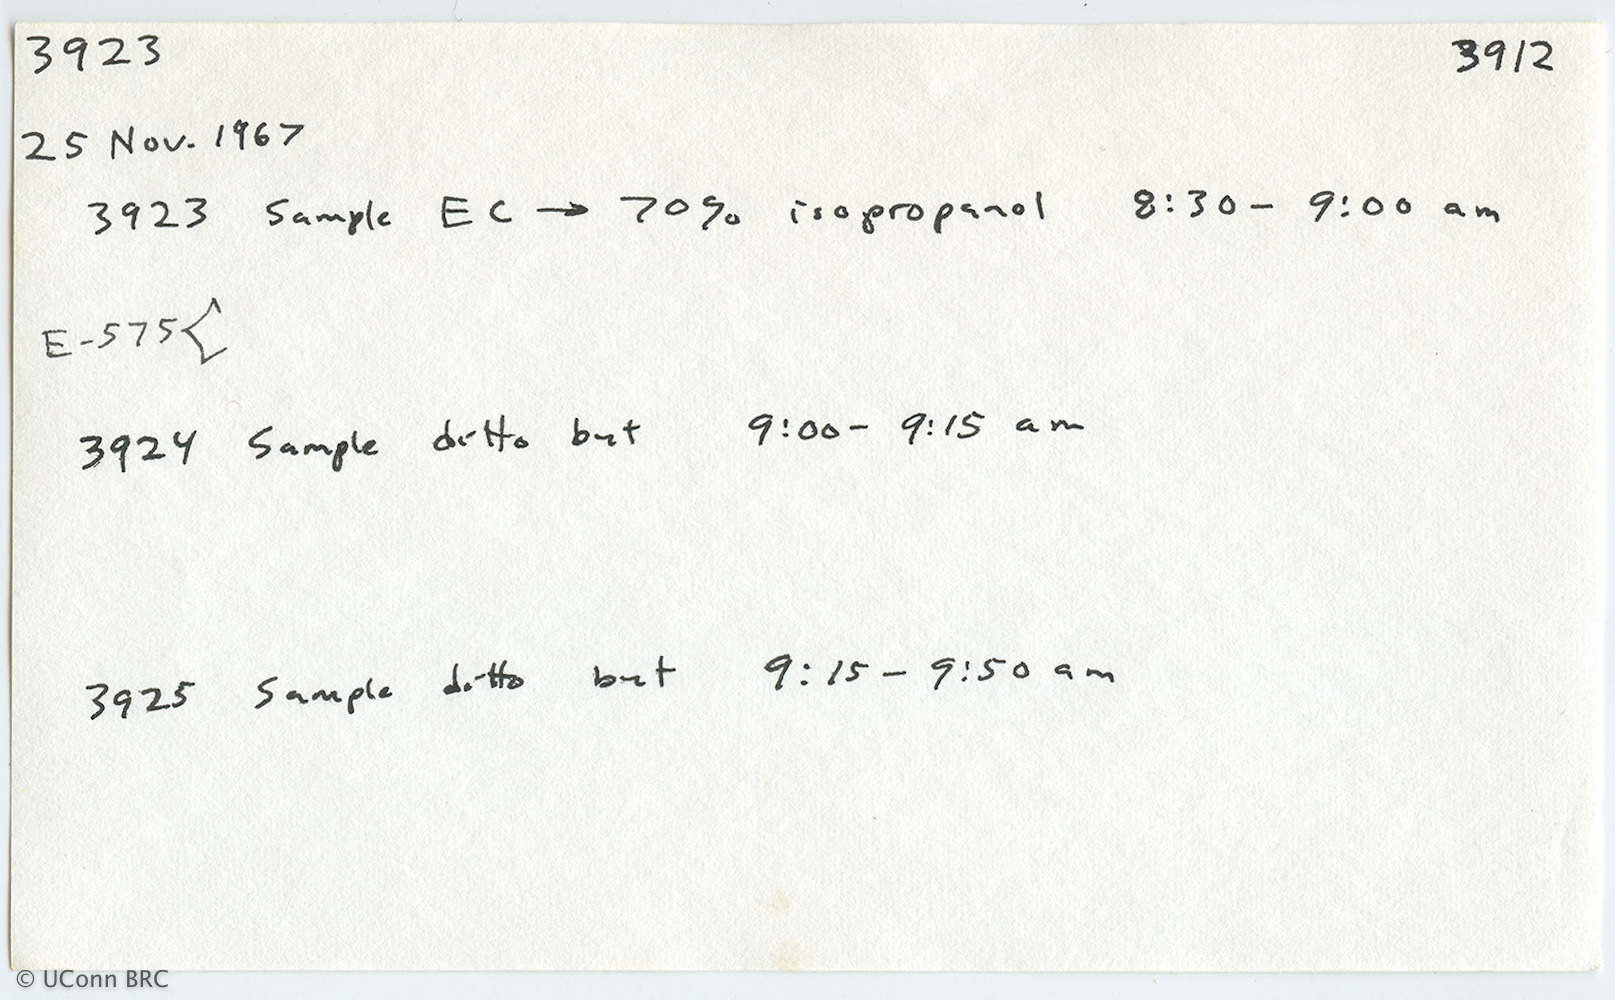 3923 3912
25 Nov. 1967
3923 Sample EC → 70% isopropanol 8:30 - 9:00 am
E-575<
3924 Sample ditto but 9:00 - 9:15 am
3925 Sample ditto but 9:15 - 9:50 am
© UConn BRC